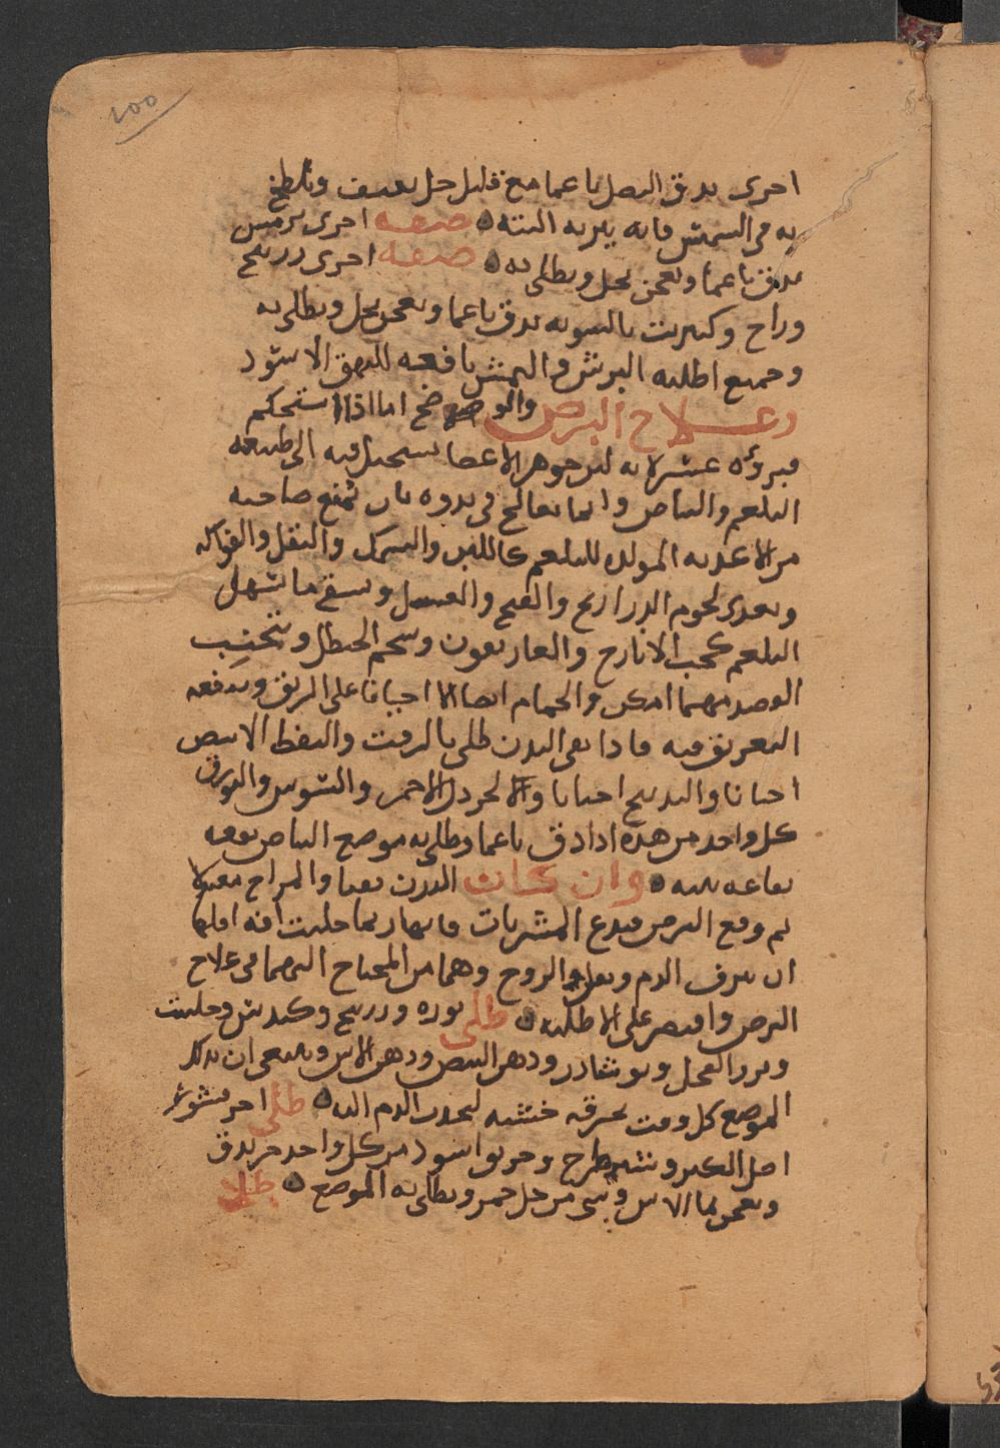 ١٥٥
اخرى يدق البصل ناعما مع قليل خل ثقيف ويلطخ
به في الشمس فانه يبريه البته صفه اخرى ترمس
يدق ناعما ويعجن بخل ويطلى به صفه اخرى زرنيخ
وزاج وكبريت بالسويه يدق ناعما ويعجن بخل ويطلى به
وجميع اطليه البرش والنمش نافعه للبهق الاسود
علاج البرص والوضح اما اذا استحكم
فبروه عسر لانه تغير جوهر الاعضا يستحيل فيه الى طبيعه
البلغم والبياض وانما يعالج في بدوه بان تمنع صاحبه
من الاغديه المولده للبلغم كاللبن والسمك والبقل والفواكه
ويغدى لحوم الدراريج والقبج والعسل ويسقى ما يسهل
البلغم كحب الايارج والغاريقون وشحم الحنظل ويتجنب
الفصد مهما امكن والحمام ايضا الا احيانا على الريق وينفعه
التعريق فيه فاذا نقى البدن طلى بالزفت والنفط الابيض
احيانا والزرنيخ احيانا والخردل الاحمر والشونيز والبورق
كل واحد من هذه اذا دق ناعما وطلى به موضع البياض نفعه
نفعا بينه وان كان البدن نقيا والمزاج معتدلا
ثم وقع البرص فيدع المشربات فانها ربما جلبت افه اقلها
ان ينزف الدم ويقل الروح وهما من المحتاج اليهما في علاج
البرص واقتصر على الاطليه طلى نوره وزرنيخ وكندس وحلتيت
وبزر الفجل ونوشادر ودهن البيض ودهن الاس وينبغي ان يدلك
الموضع كل وقت بخرقه خشنه لينجذب الدم اليه طلى اخر قشور
اصل الكبر وشيطرج وخربق اسود من كل واحد جز يدق
ويعجن بما الاس وشي من خل خمر ويطلى به الموضع طلا